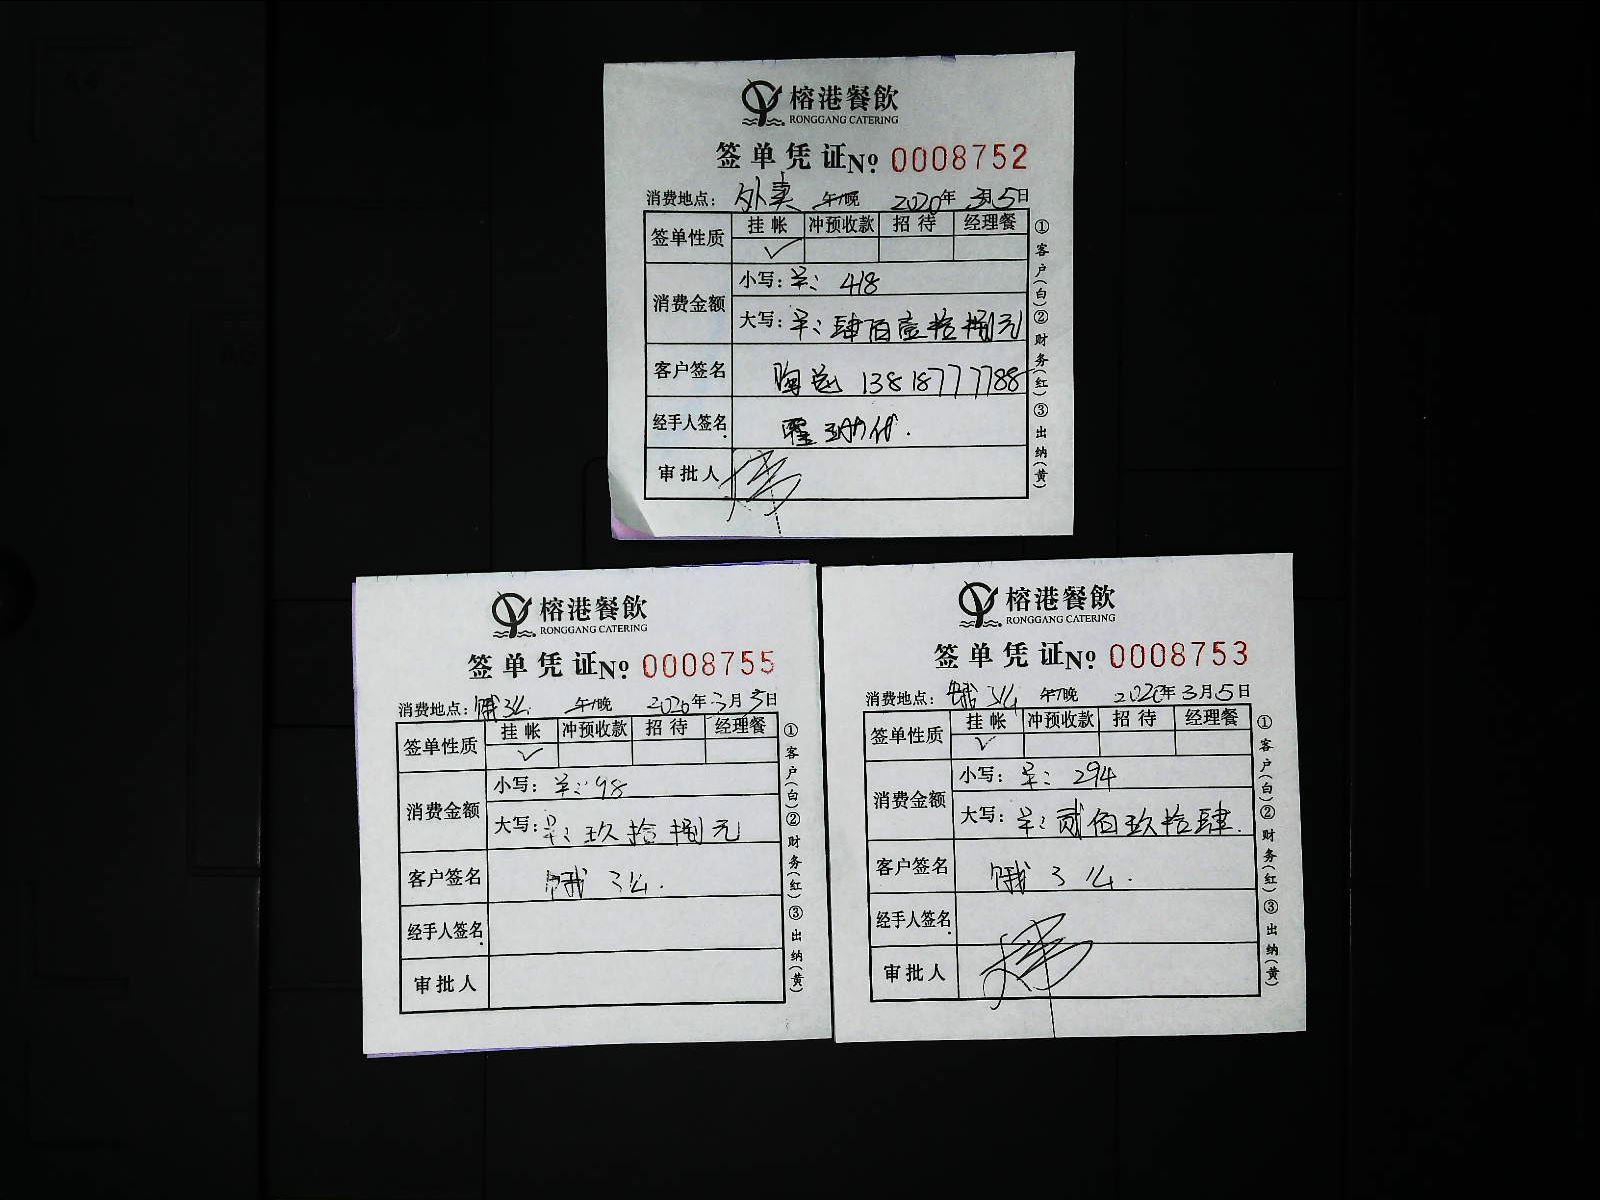 榕港餐飲
RONGGANG CATERING
签单凭证 No 0008752
消费地点: 外卖 午/晚 2020年3月5日
签单性质 挂帐 冲预收款 招待 经理餐
✓
消费金额 小写: 羊: 418
大写: 羊: 肆佰壹拾捌元
客户签名 陶总 13818777788
经手人签名
审批人
①客户(白)②财务(红)③出纳(黄)
榕港餐飲
RONGGANG CATERING
签单凭证 No 0008755
消费地点: 饿3么 午/晚 2020年3月5日
签单性质 挂帐 冲预收款 招待 经理餐
✓
消费金额 小写: 羊: 98
大写: 羊: 玖拾捌元
客户签名 饿3么.
经手人签名
审批人
①客户(白)②财务(红)③出纳(黄)
榕港餐飲
RONGGANG CATERING
签单凭证 No 0008753
消费地点: 饿3么 午/晚 2020年3月5日
签单性质 挂帐 冲预收款 招待 经理餐
✓
消费金额 小写: 羊: 294
大写: 羊: 贰佰玖拾肆.
客户签名 饿3么.
经手人签名
审批人
①客户(白)②财务(红)③出纳(黄)